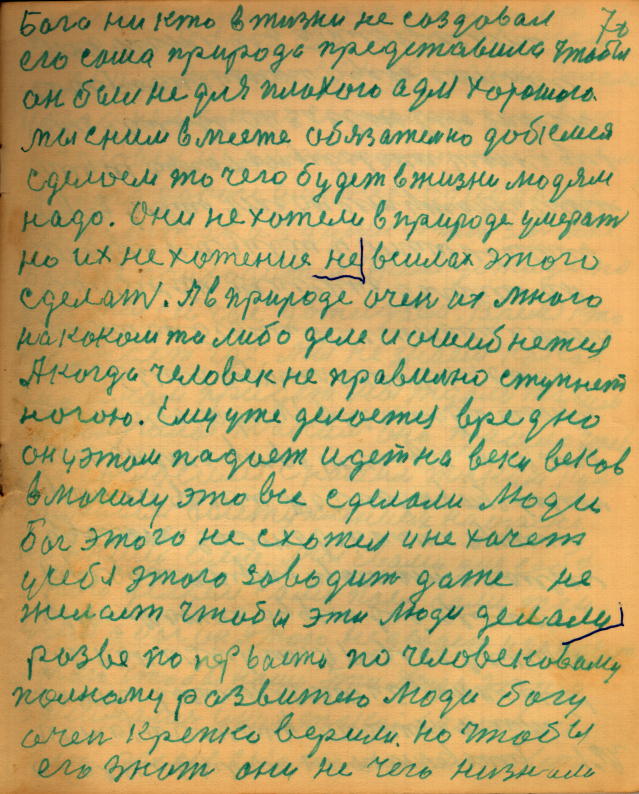 70
Бога ни кто в жизни не создовал
его сама природа представила чтобы
он был не для плохого а для хорошого.
мы с ним в месте обязательно добъемся
сделоем то чего будет в жизни людям
надо. Они не хотели в природе умерат
но их не хотение не в силах этого
сделат. А в природе очен их много
на коком та либо деле и ошибнется
А когда человек не правильно ступнет
ногою. Ему уже делоется вредно
он у этом падает идет на веки веков
в могилу это все сделоли Люди
бог этого не схотел и не хочет
у себя этого заводит даже не
желает чтобы эти люди делали
разве по первости по человековому
полному развитею Люди богу
очен крепко верили. но чтобы
его знат они не чего низнали